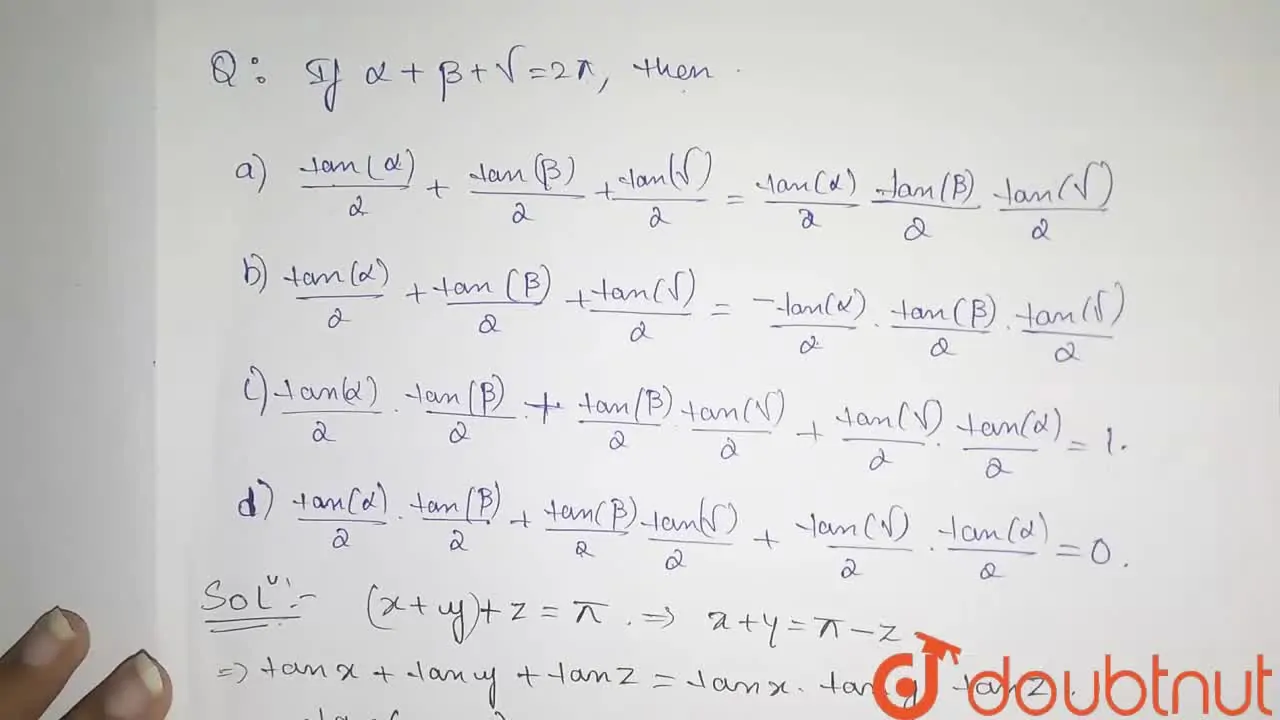 Q: If α + β + √ = 2π, then
a) tan(α)/2 + tan(β)/2 + tan(√)/2 = tan(α)/2 tan(β)/2 tan(√)/2
b) tan(α)/2 + tan(β)/2 + tan(√)/2 = -tan(α)/2 . tan(β)/2 . tan(√)/2
c) tan(α)/2 . tan(β)/2 + tan(β)/2 . tan(√)/2 + tan(√)/2 . tan(α)/2 = 1.
d) tan(α)/2 . tan(β)/2 + tan(β)/2 tan(√)/2 + tan(√)/2 . tan(α)/2 = 0.
Solⁿ:- (x+y)+z = π. => x+y = π-z
=> tanx + tany + tanz = tanx . tany tanz.
doubtnut